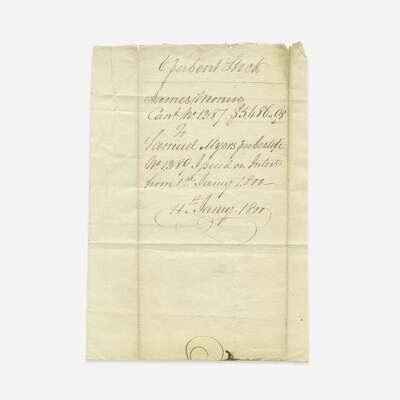 6 per Cent Stock
James Monroe
Cert. No. 1387. $3686..08
To
Samuel Myers per Certife
No. 1389 Issued on Interest
from 1st Jany 1800
4th Jany. 1800